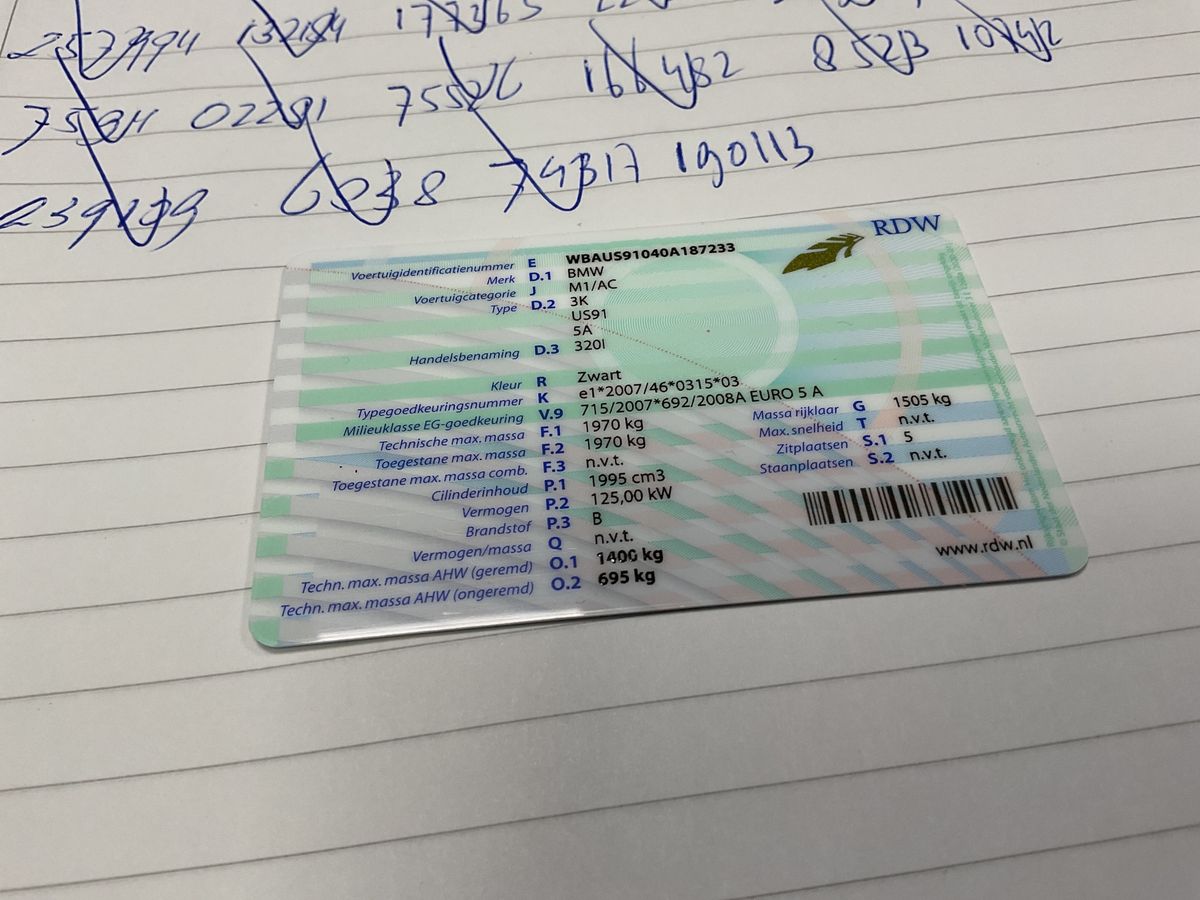 2579994 132184 177365
75911 02281 75526 166482 85213 107412
239239 6238 74317 190113
RDW
Voertuigidentificatienummer E WBAUS91040A187233
Merk D.1 BMW
Voertuigcategorie J M1/AC
Type D.2 3K
US91
5A
Handelsbenaming D.3 320I
Kleur R Zwart
Typegoedkeuringsnummer K e1*2007/46*0315*03
Milieuklasse EG-goedkeuring V.9 715/2007*692/2008A EURO 5 A
Technische max. massa F.1 1970 kg
Toegestane max. massa F.2 1970 kg
Toegestane max. massa comb. F.3 n.v.t.
Cilinderinhoud P.1 1995 cm3
Vermogen P.2 125,00 kW
Brandstof P.3 B
Vermogen/massa Q n.v.t.
Techn. max. massa AHW (geremd) O.1 1400 kg
Techn. max. massa AHW (ongeremd) O.2 695 kg
Massa rijklaar G 1505 kg
Max. snelheid T n.v.t.
Zitplaatsen S.1 5
Staanplaatsen S.2 n.v.t.
www.rdw.nl